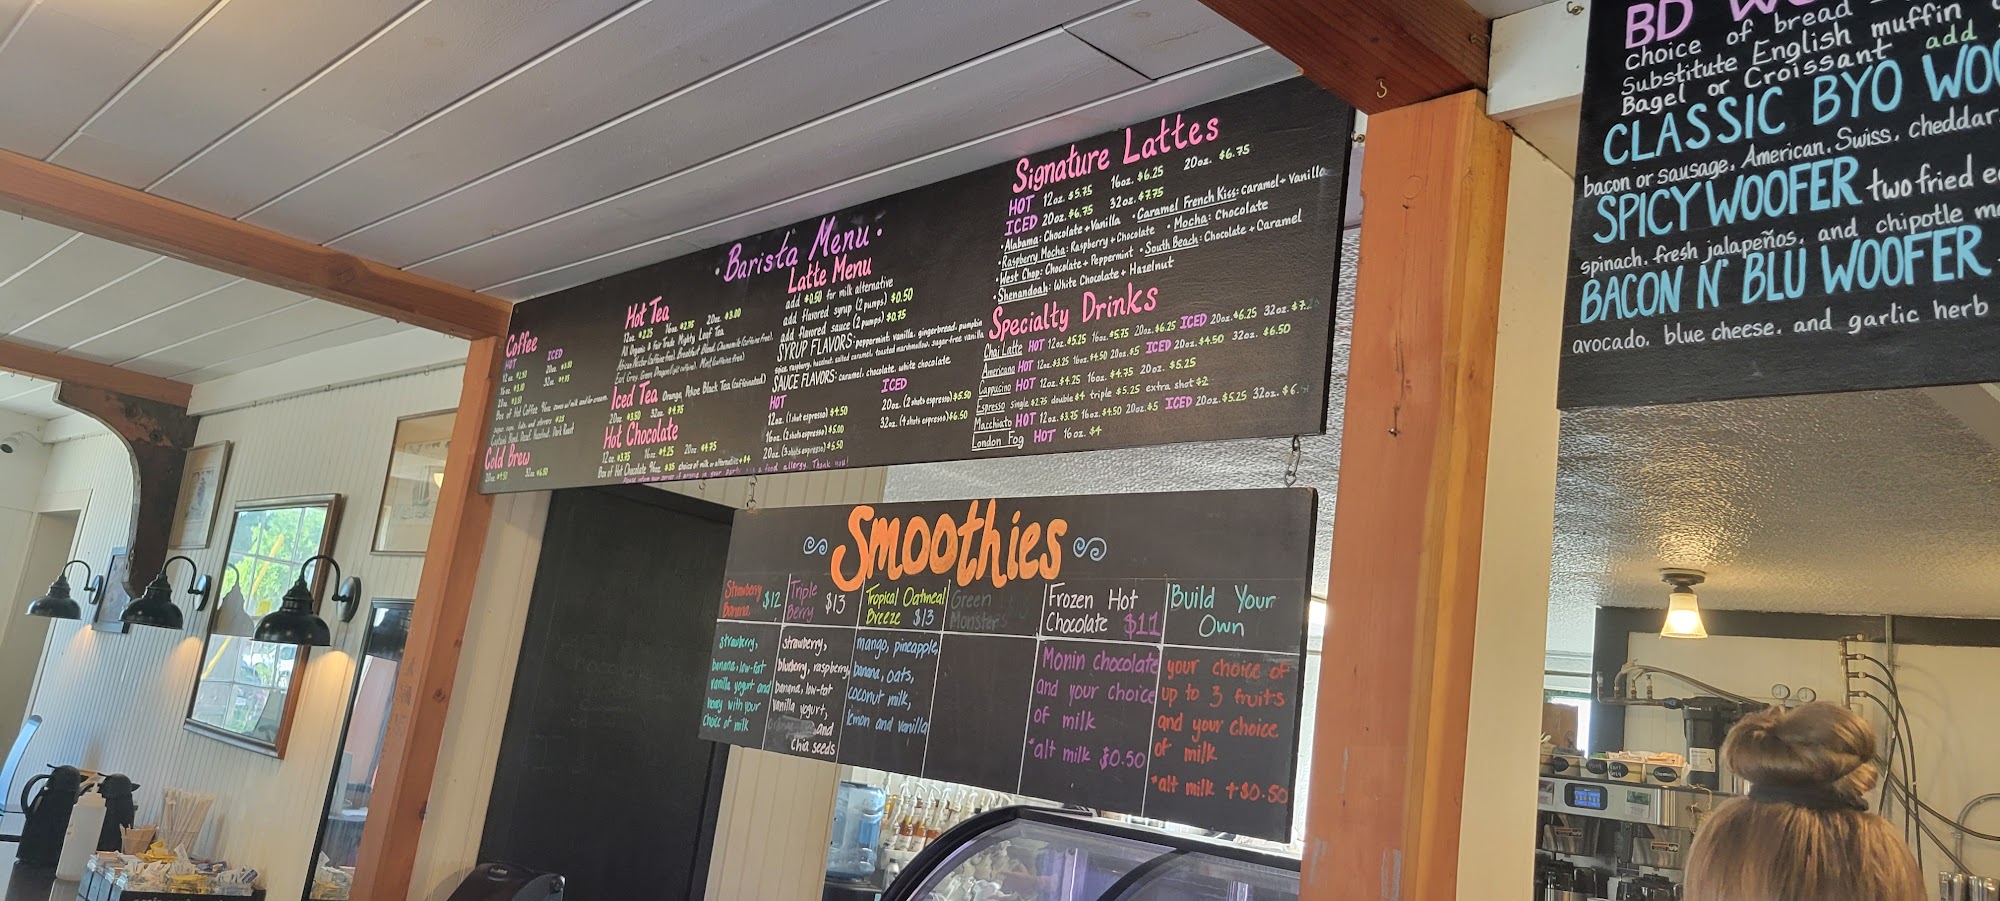 · Barista Menu ·
Coffee
HOT ICED
12oz. $2.50 20oz. $3.50
16oz. $3.00 32oz. $4.95
20oz. $3.50
Box of Hot Coffee 96oz. comes w/ milk and/or cream
sugar, cups, lids, and stirrers
Roast, Hazelnut, Dark Roast
Cold Brew
20oz. $4.50 32oz. $6.50
Hot Tea
12oz. $2.25 16oz. $2.75 20oz. $3.00
All Organic & Fair Trade Mighty Leaf Tea
African Nectar (caffeine free), Breakfast Blend, Chamomile (caffeine free),
Earl Grey, Green Dragon, Mint (caffeine free)
Iced Tea Orange Pekoe Black Tea (caffeinated)
20oz. $3.50 32oz. $4.75
Hot Chocolate
12oz. $3.75 16oz. $4.25 20oz. $4.75
Box of Hot Chocolate 96oz. $35 choice of milk or alternative +$4
Please inform your server if anyone in your party has a food allergy. Thank you!
Latte Menu
add $0.50 for milk alternative
add flavored syrup (2 pumps) $0.50
add flavored sauce (2 pumps) $0.75
SYRUP FLAVORS: peppermint, vanilla, gingerbread, pumpkin
spice, raspberry, hazelnut, salted caramel, toasted marshmallow, sugar-free vanilla
SAUCE FLAVORS: caramel, chocolate, white chocolate
HOT ICED
12oz. (1 shot espresso) $4.50 20oz. (2 shots espresso) $5.50
16oz. (2 shots espresso) $5.00 32oz. (4 shots espresso) $6.50
20oz. (3 shots espresso) $5.50
Signature Lattes
HOT 12oz. $5.75 16oz. $6.25 20oz. $6.75
ICED 20oz. $6.75 32oz. $7.75
· Alabama: Chocolate + Vanilla · Caramel French Kiss: Caramel + Vanilla
· Raspberry Mocha: Raspberry + Chocolate · Mocha: Chocolate
· West Chop: Chocolate + Peppermint · South Beach: Chocolate + Caramel
· Shenandoah: White Chocolate + Hazelnut
Specialty Drinks
Chai Latte HOT 12oz. $5.25 16oz. $5.75 20oz. $6.25 ICED 20oz. $6.25 32oz. $7.25
Americano HOT 12oz. $3.25 16oz. $4.50 20oz. $5 ICED 20oz. $4.50 32oz. $6.50
Cappucino HOT 12oz. $4.25 16oz. $4.75 20oz. $5.25
Espresso single $2.75 double $4 triple $5.25 extra shot $2
Macchiato HOT 12oz. $3.75 16oz. $4.50 20oz. $5 ICED 20oz. $5.25 32oz. $6.
London Fog HOT 16oz. $4
Smoothies
Strawberry Banana $12
strawberry,
banana, low-fat
vanilla yogurt and
honey with your
choice of milk
Triple Berry $13
strawberry,
blueberry, raspberry,
banana, low-fat
vanilla yogurt,
and
chia seeds
Tropical Oatmeal
Breeze $13
mango, pineapple,
banana, oats,
coconut milk,
lemon and vanilla
Green
Monster
Frozen Hot
Chocolate $11
Monin chocolate
and your choice
of milk
*alt milk $0.50
Build Your
Own
your choice of
up to 3 fruits
and your choice
of milk
*alt milk +$0.50
BD
choice of bread
Substitute English muffin
Bagel or Croissant add
CLASSIC BYO WOO
bacon or sausage, American, Swiss, cheddar,
SPICY WOOFER two fried e
spinach, fresh jalapeños, and chipotle m
BACON N' BLU WOOFER
avocado, blue cheese, and garlic herb